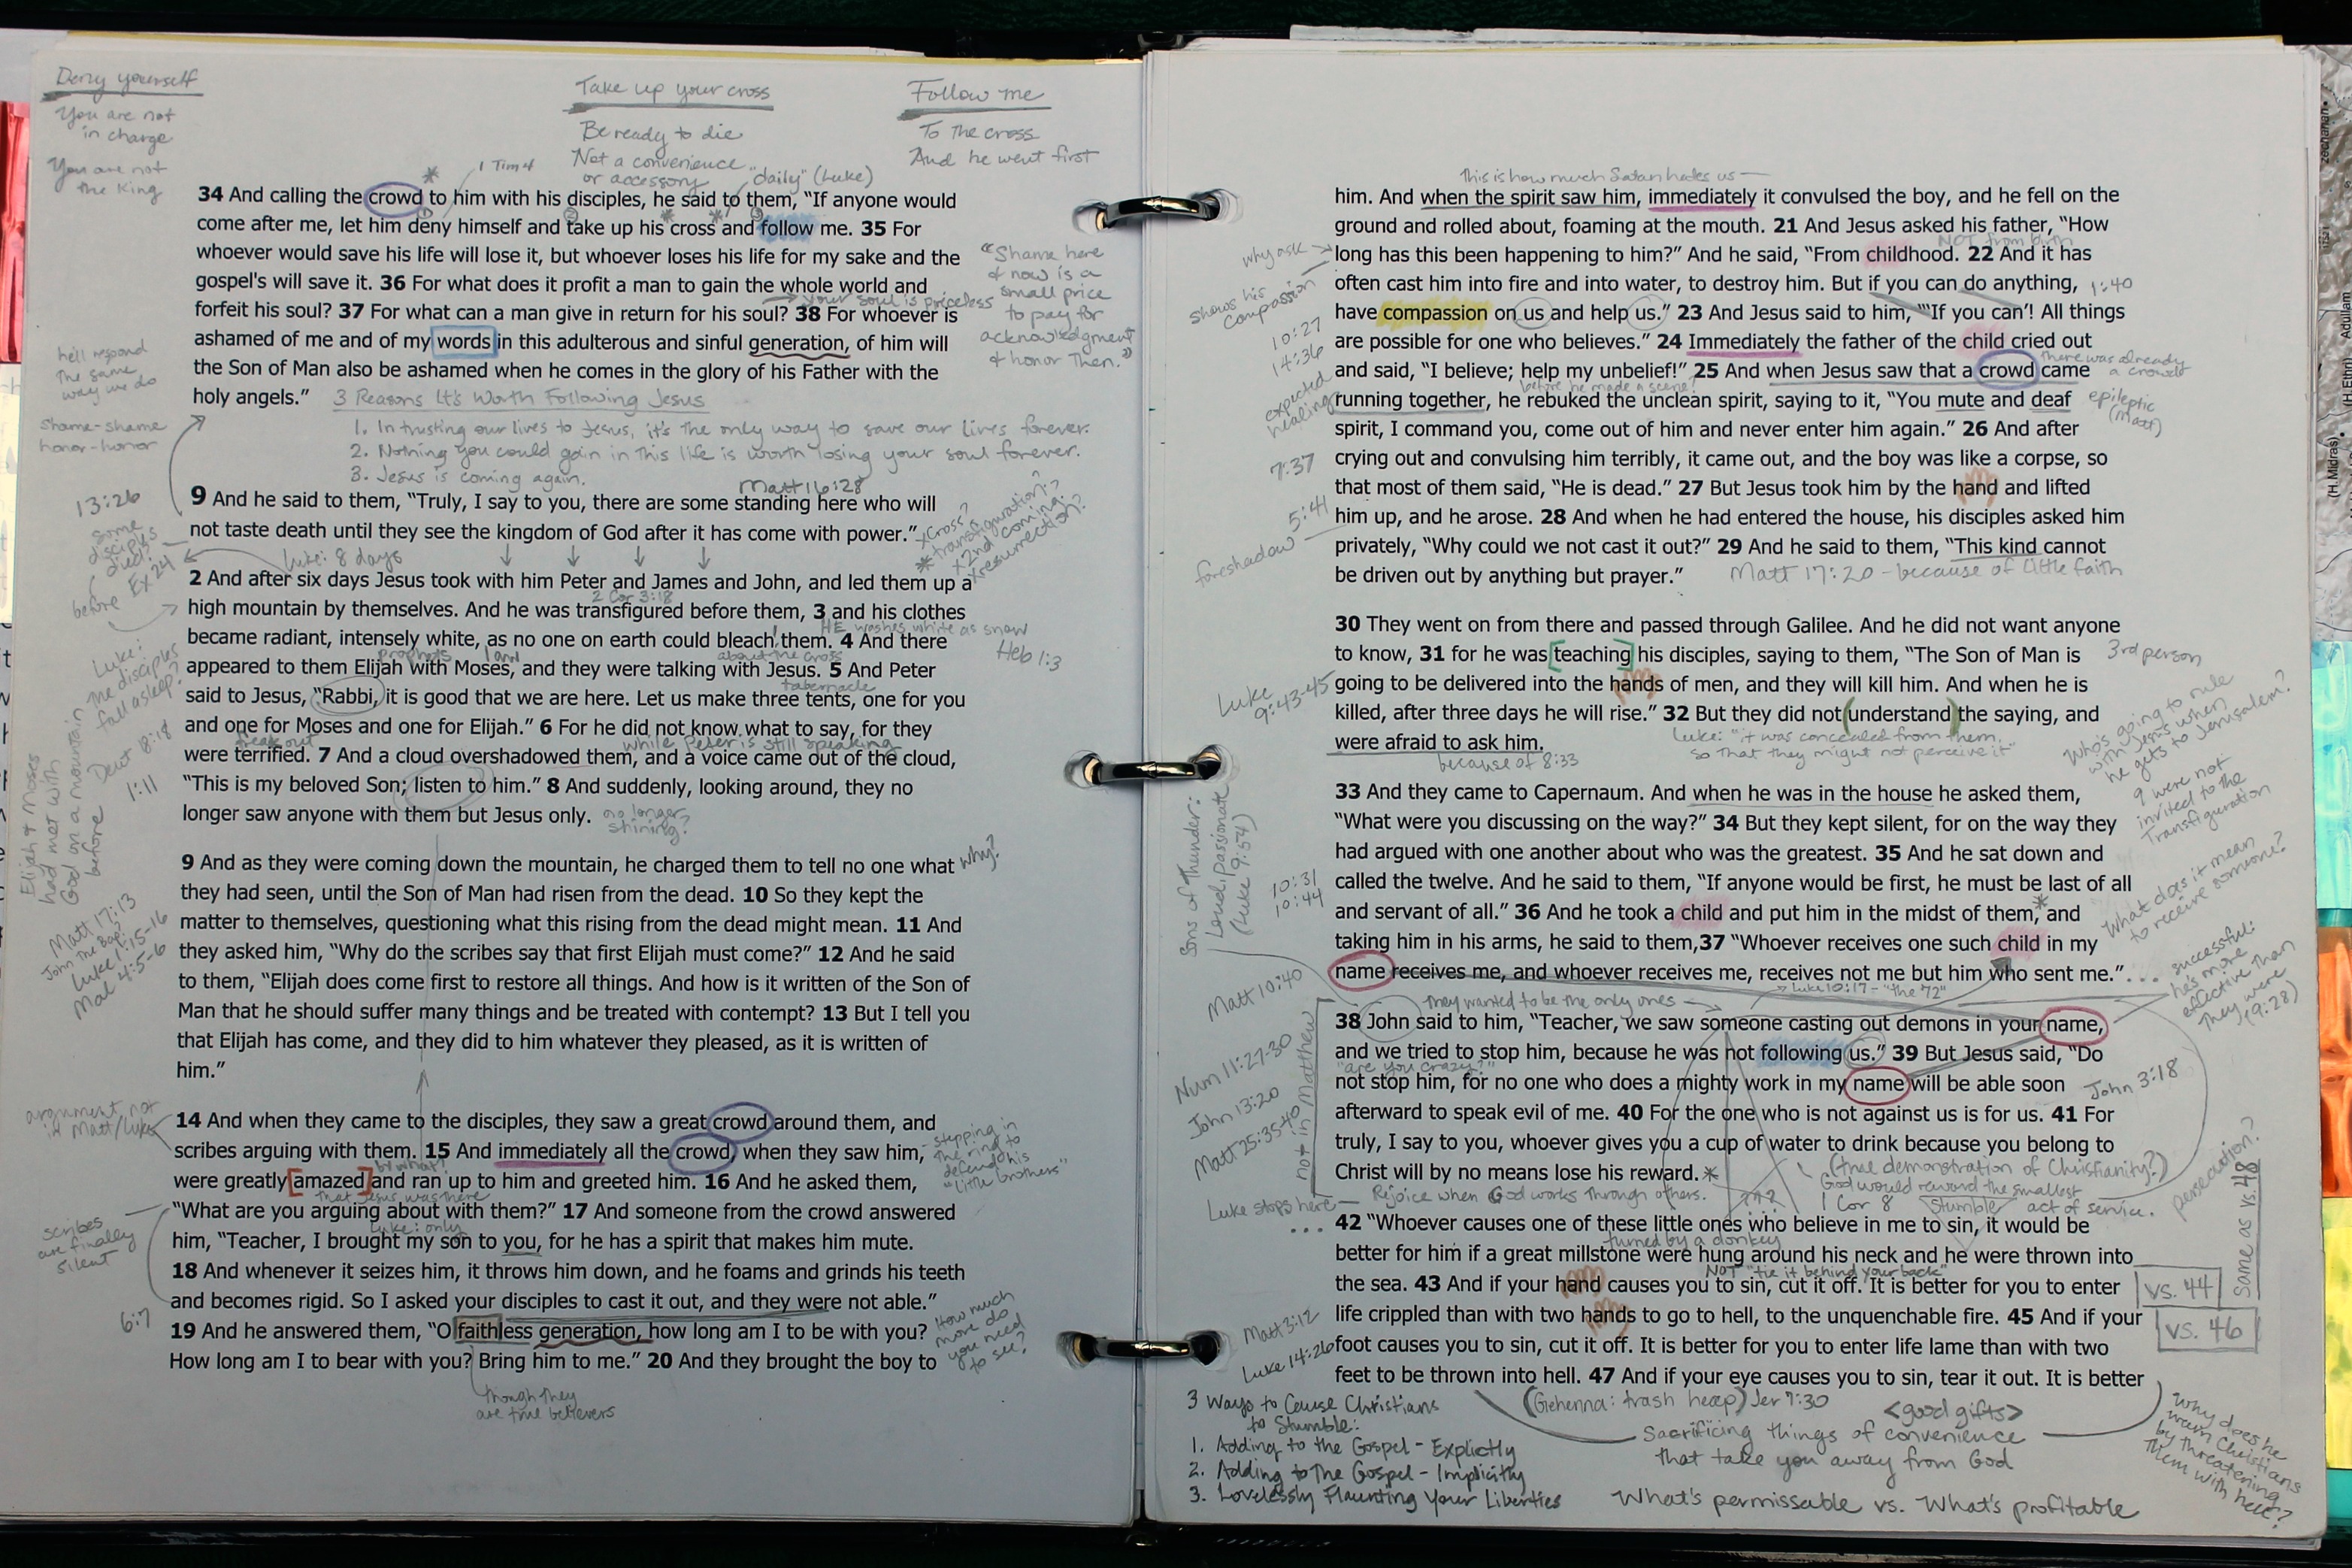 Deny yourself
You are not
in charge
You are not
the King
Take up your cross
Be ready to die
Not a convenience
or accessory
Follow me
To the cross
And he went first
1 Tim 4
"daily" (Luke)
34 And calling the crowd to him with his disciples, he said to them, “If anyone would
come after me, let him deny himself and take up his cross and follow me. 35 For
whoever would save his life will lose it, but whoever loses his life for my sake and the
gospel's will save it. 36 For what does it profit a man to gain the whole world and
your soul is priceless
forfeit his soul? 37 For what can a man give in return for his soul? 38 For whoever is
ashamed of me and of my words in this adulterous and sinful generation, of him will
the Son of Man also be ashamed when he comes in the glory of his Father with the
holy angels.”
"Shame here
& now is a
small price
to pay for
acknowledgment
& honor then."
he'll respond
the same
way we do
shame-shame
honor-honor
3 Reasons It's Worth Following Jesus
1. In trusting our lives to Jesus, it's the only way to save our lives forever.
2. Nothing you could gain in this life is worth losing your soul forever.
3. Jesus is coming again.
Matt 16:28
13:26
9 And he said to them, “Truly, I say to you, there are some standing here who will
not taste death until they see the kingdom of God after it has come with power.”
x cross?
* transfiguration?
x 2nd coming?
x resurrection?
some
disciples
died?
before Ex 24
Luke: 8 days
2 And after six days Jesus took with him Peter and James and John, and led them up a
2 Cor 3:18
high mountain by themselves. And he was transfigured before them, 3 and his clothes
HE washes white as snow
became radiant, intensely white, as no one on earth could bleach them. 4 And there
Heb 1:3
prophets law about the cross
appeared to them Elijah with Moses, and they were talking with Jesus. 5 And Peter
tabernacle
said to Jesus, “Rabbi, it is good that we are here. Let us make three tents, one for you
and one for Moses and one for Elijah.” 6 For he did not know what to say, for they
freak out while Peter is still speaking
were terrified. 7 And a cloud overshadowed them, and a voice came out of the cloud,
“This is my beloved Son; listen to him.” 8 And suddenly, looking around, they no
longer saw anyone with them but Jesus only.
no longer
shining?
Luke:
the disciples
fall asleep?
Deut 18:18
1:11
Elijah & Moses
had met with
God on a mountain
before
9 And as they were coming down the mountain, he charged them to tell no one what
why?
they had seen, until the Son of Man had risen from the dead. 10 So they kept the
matter to themselves, questioning what this rising from the dead might mean. 11 And
they asked him, “Why do the scribes say that first Elijah must come?” 12 And he said
to them, “Elijah does come first to restore all things. And how is it written of the Son of
Man that he should suffer many things and be treated with contempt? 13 But I tell you
that Elijah has come, and they did to him whatever they pleased, as it is written of
him.”
Matt 17:13
John the Bap?
Luke 1:15-16
Mal 4:5-6
argument not
in Matt/Luke
14 And when they came to the disciples, they saw a great crowd around them, and
scribes arguing with them. 15 And immediately all the crowd, when they saw him,
by what?
were greatly amazed and ran up to him and greeted him. 16 And he asked them,
that Jesus was there
“What are you arguing about with them?” 17 And someone from the crowd answered
Luke: only
him, “Teacher, I brought my son to you, for he has a spirit that makes him mute.
18 And whenever it seizes him, it throws him down, and he foams and grinds his teeth
and becomes rigid. So I asked your disciples to cast it out, and they were not able.”
19 And he answered them, “O faithless generation, how long am I to be with you?
How long am I to bear with you? Bring him to me.” 20 And they brought the boy to
stepping in
the ring to
defend his
"little brothers"
scribes
are finally
silent
6:7
How much
more do
you need
to see?
though they
are true believers
This is how much Satan hates us
him. And when the spirit saw him, immediately it convulsed the boy, and he fell on the
ground and rolled about, foaming at the mouth. 21 And Jesus asked his father, “How
NOT from birth
long has this been happening to him?” And he said, “From childhood. 22 And it has
often cast him into fire and into water, to destroy him. But if you can do anything,
1:40
have compassion on us and help us.” 23 And Jesus said to him, “‘If you can’! All things
are possible for one who believes.” 24 Immediately the father of the child cried out
there was already
a crowd
and said, “I believe; help my unbelief!” 25 And when Jesus saw that a crowd came
before he made a scene?
running together, he rebuked the unclean spirit, saying to it, “You mute and deaf
epileptic
(Matt)
spirit, I command you, come out of him and never enter him again.” 26 And after
crying out and convulsing him terribly, it came out, and the boy was like a corpse, so
that most of them said, “He is dead.” 27 But Jesus took him by the hand and lifted
him up, and he arose. 28 And when he had entered the house, his disciples asked him
privately, “Why could we not cast it out?” 29 And he said to them, “This kind cannot
be driven out by anything but prayer.”
Matt 17:20 - because of little faith
why ask
shows his
compassion
10:27
14:36
expected
healing
7:37
5:41
foreshadow
30 They went on from there and passed through Galilee. And he did not want anyone
to know, 31 for he was teaching his disciples, saying to them, “The Son of Man is
3rd person
going to be delivered into the hands of men, and they will kill him. And when he is
killed, after three days he will rise.” 32 But they did not understand the saying, and
were afraid to ask him.
because of 8:33
Luke: "it was concealed from them,
so that they might not perceive it"
Luke
9:43-45
Who's going to rule
with Jesus when
he gets to Jerusalem?
9 were not
invited to the
Transfiguration
33 And they came to Capernaum. And when he was in the house he asked them,
“What were you discussing on the way?” 34 But they kept silent, for on the way they
had argued with one another about who was the greatest. 35 And he sat down and
called the twelve. And he said to them, “If anyone would be first, he must be last of all
and servant of all.” 36 And he took a child and put him in the midst of them, and
taking him in his arms, he said to them,37 “Whoever receives one such child in my
name receives me, and whoever receives me, receives not me but him who sent me.”...
Sons of Thunder:
Loud, passionate
(Luke 9:54)
10:31
10:44
What does it mean
to receive someone?
successful:
he's more
effective than
they were
(9:28)
Matt 10:40
They wanted to be the only ones
Luke 10:17 - "the 72"
38 John said to him, “Teacher, we saw someone casting out demons in your name,
and we tried to stop him, because he was not following us.” 39 But Jesus said, “Do
"are you crazy?"
not stop him, for no one who does a mighty work in my name will be able soon
John 3:18
afterward to speak evil of me. 40 For the one who is not against us is for us. 41 For
truly, I say to you, whoever gives you a cup of water to drink because you belong to
Christ will by no means lose his reward.*
not in Matthew
Num 11:27-30
John 13:20
Matt 25:35-40
Luke stops here
Rejoice when God works through others.
???
(true demonstration of Christianity?)
God would reward the smallest
act of service.
1 Cor 8
Stumble
persecution?
Same as vs. 48
... 42 “Whoever causes one of these little ones who believe in me to sin, it would be
turned by a donkey
better for him if a great millstone were hung around his neck and he were thrown into
NOT "tie it behind your back"
the sea. 43 And if your hand causes you to sin, cut it off. It is better for you to enter
vs. 44
life crippled than with two hands to go to hell, to the unquenchable fire. 45 And if your
vs. 46
foot causes you to sin, cut it off. It is better for you to enter life lame than with two
feet to be thrown into hell. 47 And if your eye causes you to sin, tear it out. It is better
Matt 3:12
Luke 14:26
3 Ways to Cause Christians
to Stumble:
1. Adding to the Gospel - Explictly
2. Adding to the Gospel - Implicitly
3. Lovelessly Flaunting Your Liberties
(Gehenna: trash heap) Jer 7:30
<good gifts>
Sacrificing things of convenience
that take you away from God
What's permissable vs. What's profitable
Why does he
warn Christians
by threatening
them with hell?
zechariah
Adullam
(H.Midras)